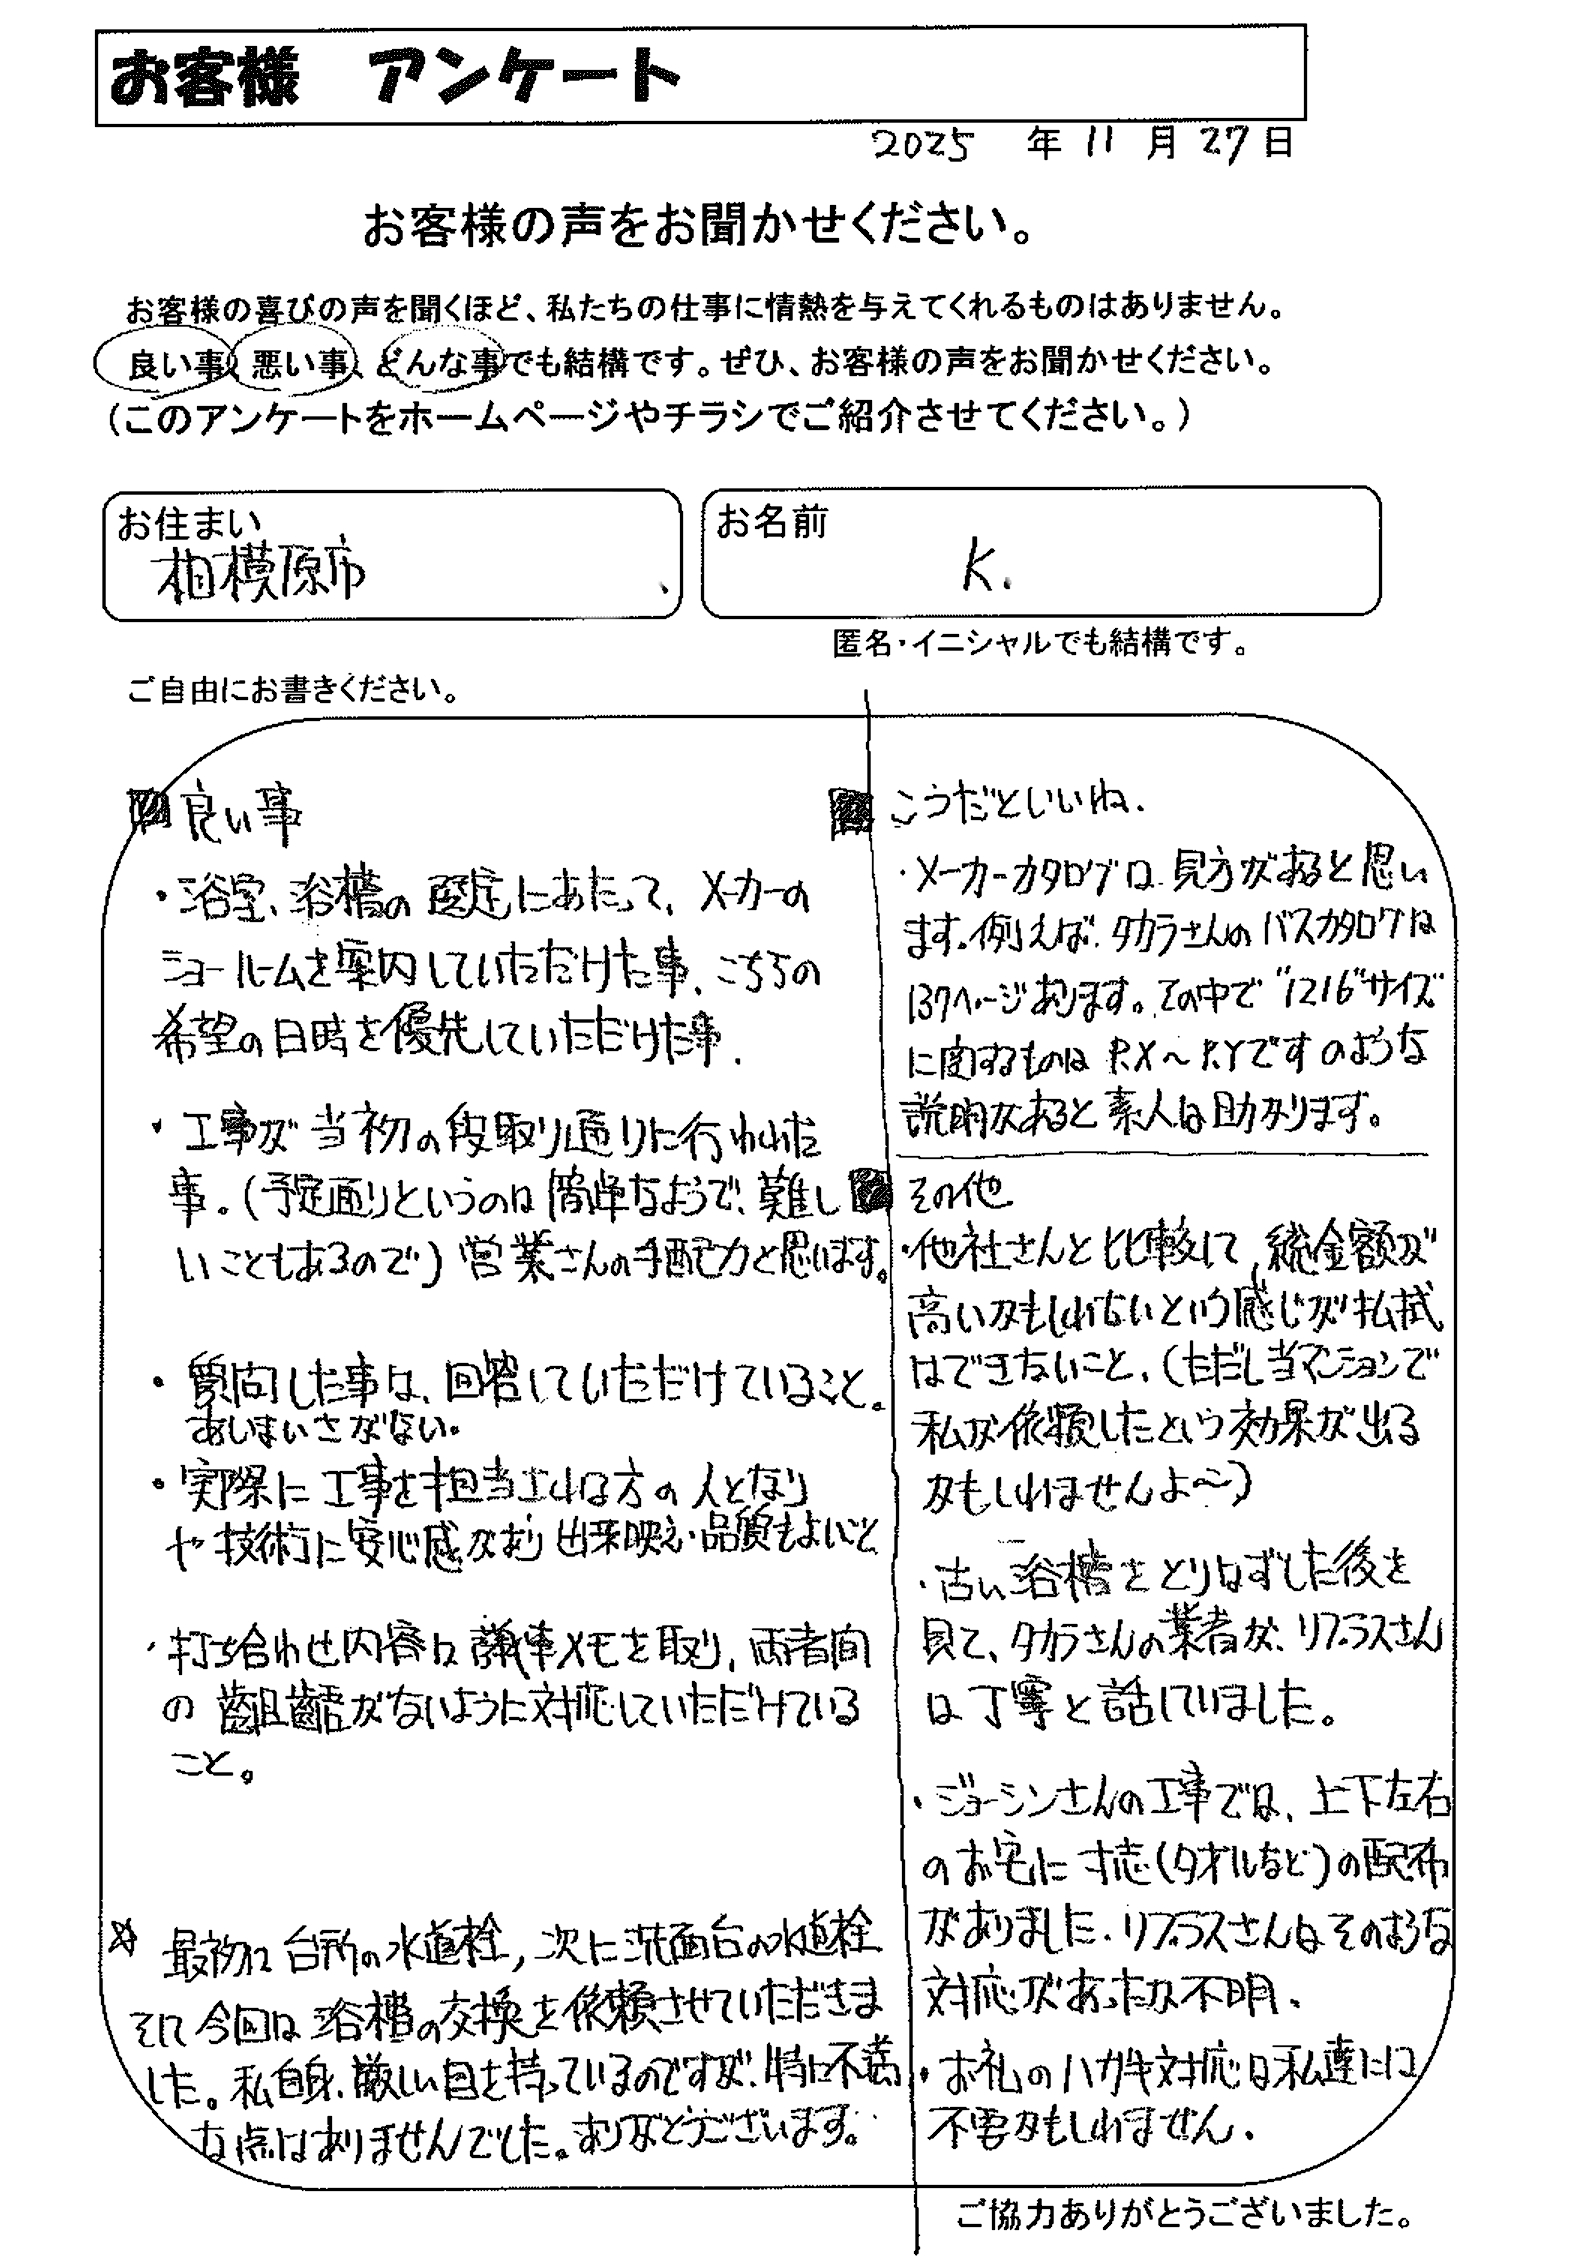 お客様　アンケート
2025 年 11 月 27 日
お客様の声をお聞かせください。
お客様の喜びの声を聞くほど、私たちの仕事に情熱を与えてくれるものはありません。
良い事、悪い事、どんな事でも結構です。ぜひ、お客様の声をお聞かせください。
（このアンケートをホームページやチラシでご紹介させてください。）
お住まい
相模原市
お名前
K.
匿名・イニシャルでも結構です。
ご自由にお書きください。
良い事
・浴室、浴槽の選定にあたって、メーカーの
ショールームを案内していただけた事、こちらの
希望の日時を優先していただけた事.
・工事が当初の段取り通りに行われた
事。（予定通りというのは簡単なようで、難し
いこともあるので）営業さんの手配力と思います。
・質問した事は、回答していただけていること。
あいまいさがない。
・実際に工事を担当される方の人となり
や技術に安心感があり出来映え・品質もよいこと
・打ち合わせ内容は議事メモを取り、両者間
の齟齬がないように対応していただけている
こと。
☆ 最初は台所の水道栓，次に洗面台の水道栓
そして今回は浴槽の交換を依頼させていただきま
した。私自身、厳しい目を持っているのですが、特に不満
な点はありませんでした。ありがとうございます。
こうだといいね.
・メーカーカタログは見方があると思い
ます。例えば、タカラさんのバスカタログは
137ページあります。その中で“1216”サイズ
に関するものはP.X～P.Yですのような
説明があると素人は助かります。
その他
・他社さんと比較して、総金額が
高いかもしれないという感じが払拭
はできないこと、（ただし当マンションで
私が依頼したという効果が出る
かもしれませんよ～）
・古い浴槽をとりはずした後を
見て、タカラさんの業者が、リプラスさん
は丁寧と話していました。
・ジョーシンさんの工事では、上下左右
のお宅に寸志（タオルなど）の配布
がありました. リプラスさんはそのような
対応があったか不明.
・お礼のハガキ対応は私達には
不要かもしれません.
ご協力ありがとうございました。